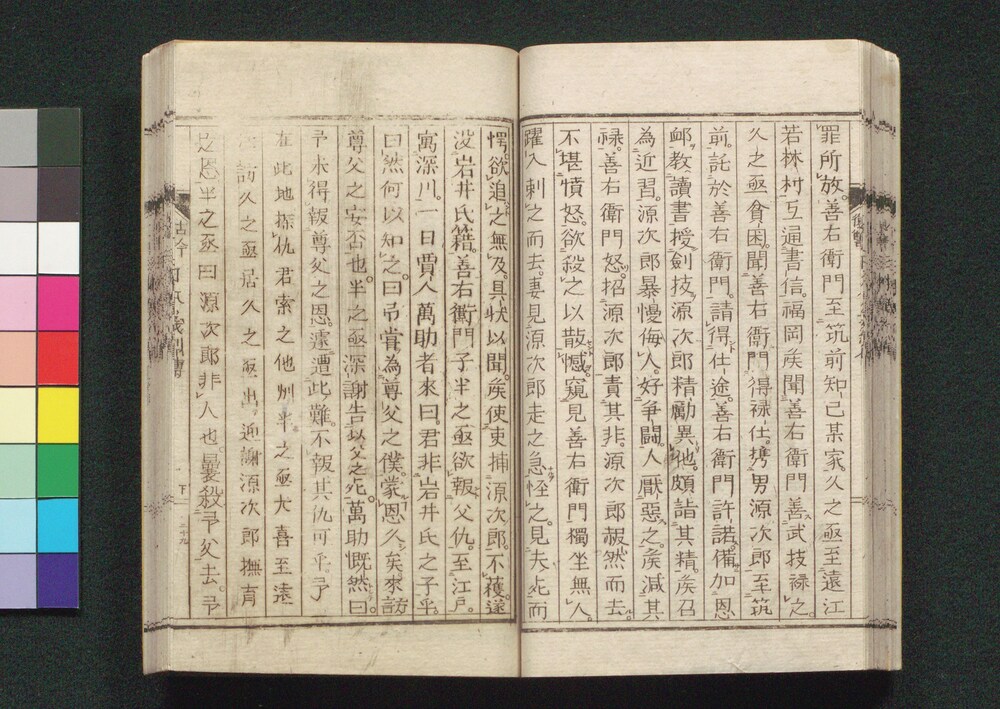 罪所放。善右衛門至筑前知己某家。久之亟至遠江
若林村互通書信。福岡矦聞善右衛門善武技禄之。
久之亟貧困。聞善右衛門得禄仕。携男源次郎至筑
前。託於善右衛門。請得仕途。善右衛門許諾。備加恩
邺。教讀書授劍技。源次郎精勵異他。頗詣其精。矦召
為近習。源次郎暴慢侮人。好争闘。人厭惡之。矦減其
禄。善右衛門怒。招源次郎責其非。源次郎赧然而去。
不堪憤怒。欲殺之以散憾。窺見善右衛門獨坐無人。
躍入刺之而去。妻見源次郎走之急。怪之。見夫死而
愕。欲追之無及。具状以聞。矦使吏捕源次郎。不獲。遂
没岩井氏籍。善右衛門子半之亟欲報父仇。至江戸。
寓深川。一日賈人萬助者來曰。君非岩井氏之子乎。
曰然何以知之。曰予嘗為尊父之僕。蒙恩久矣。來訪
尊父之安否也。半之亟深謝告以父之死。萬助慨然曰。
予未得報尊父之恩。遽遭此難。不報其仇可乎。予
在此地探仇君索之他州。半之亟大喜至遠
訪久之亟居久之亟出。迎謝源次郎撫育
之恩半之亟曰源次郎非人也。曩殺予父去。予
下 二十九